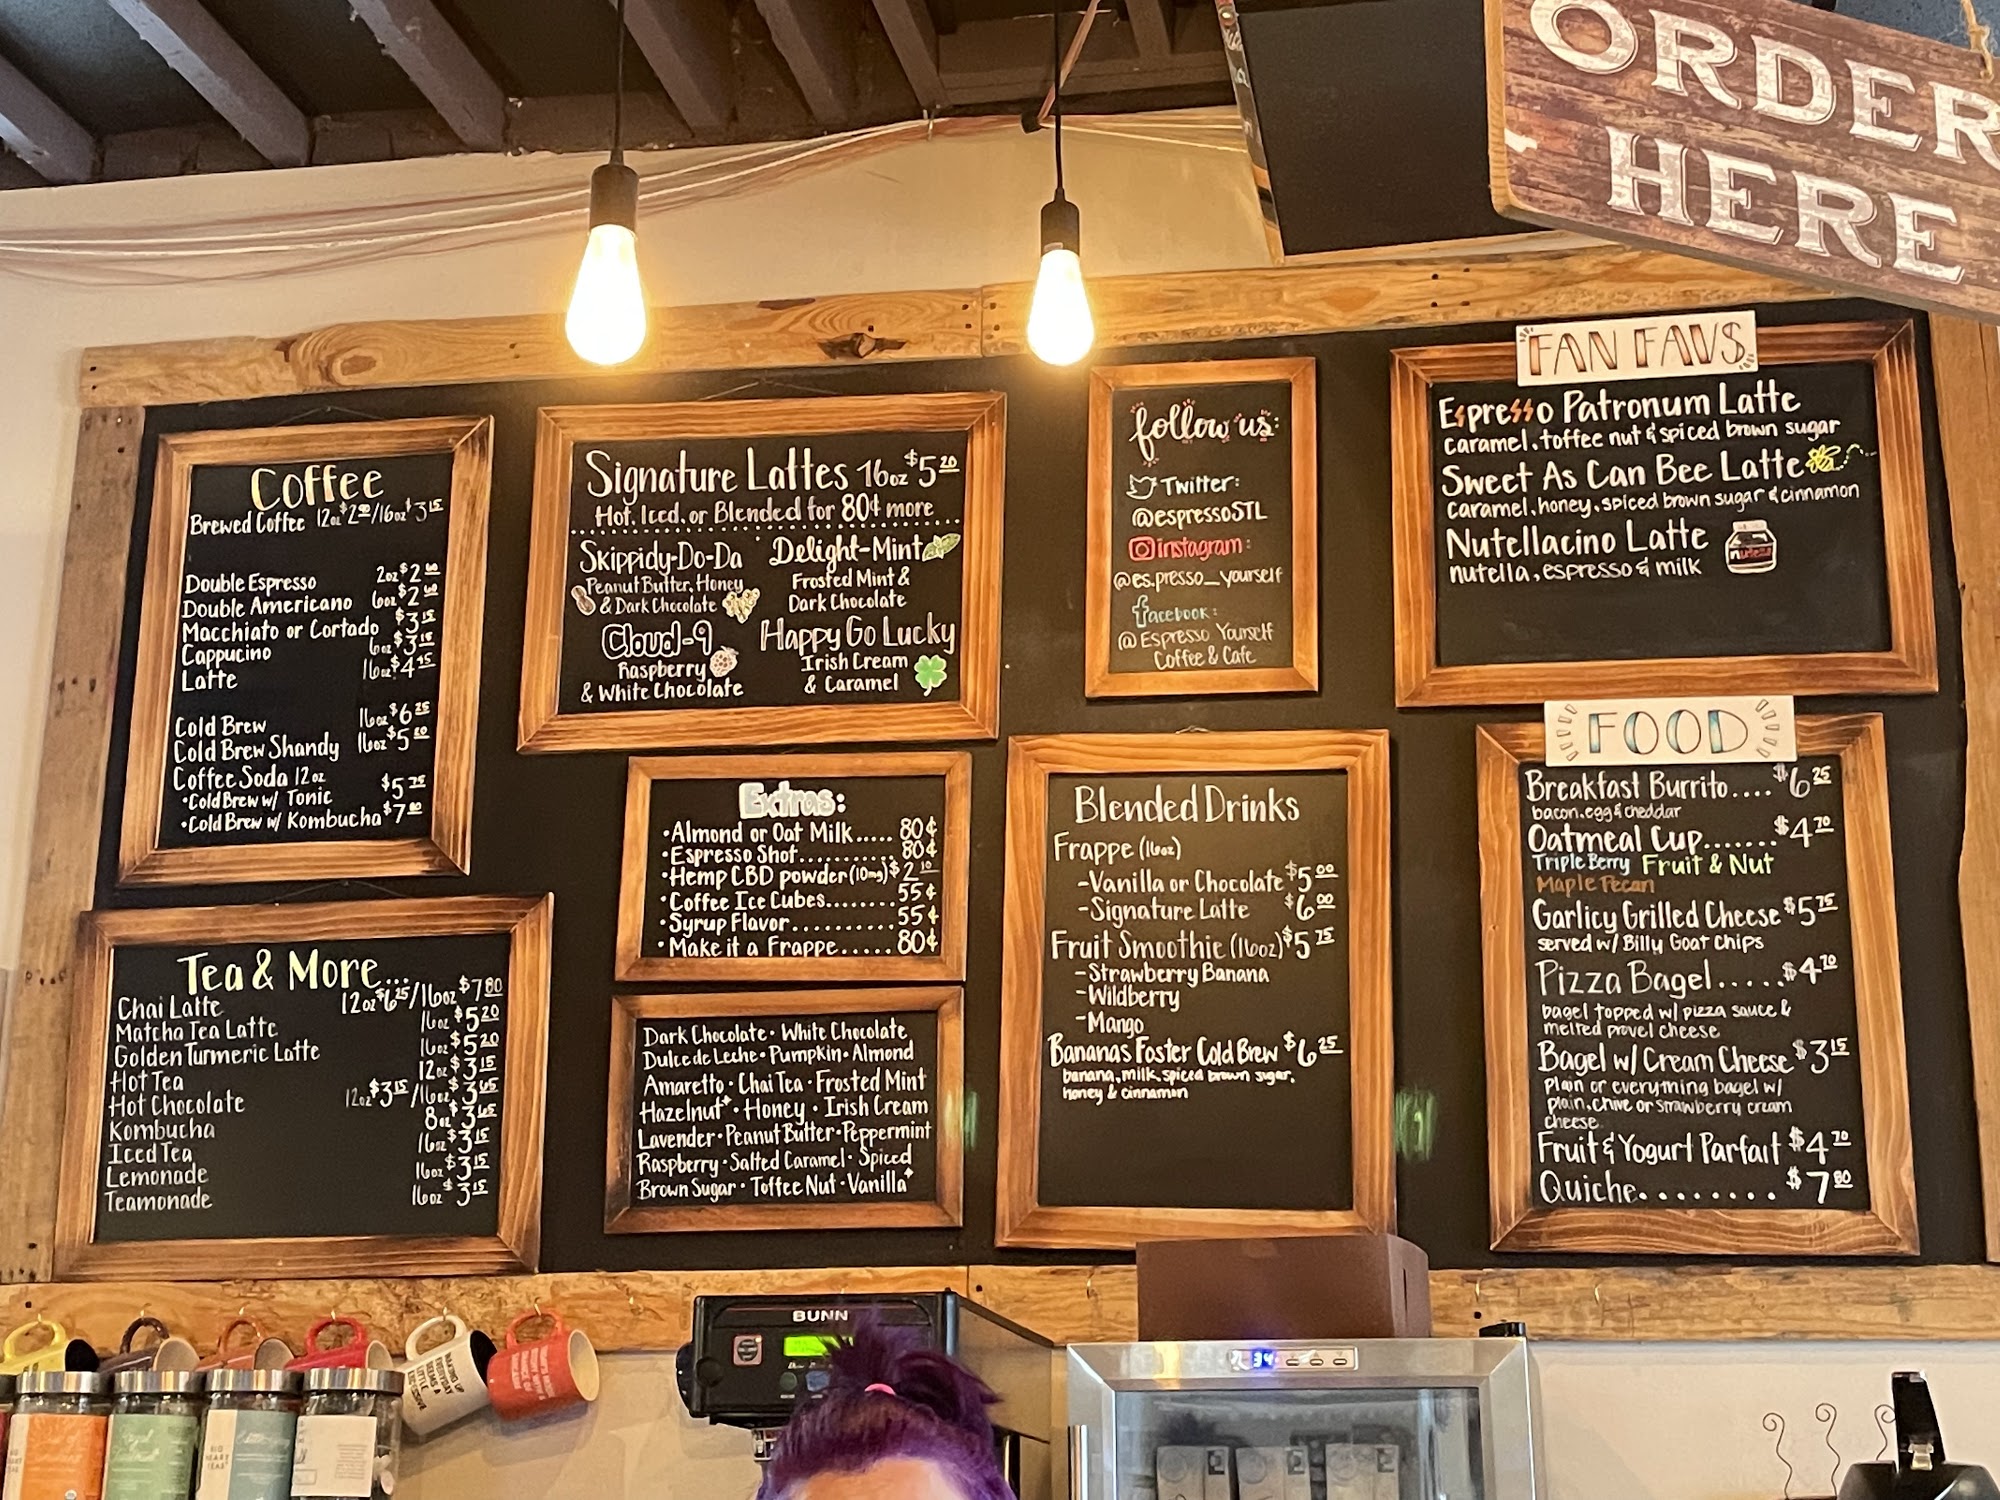 ORDER
HERE
Coffee
Brewed Coffee 12oz $2.90/16oz $3.15
Double Espresso 2oz $2.60
Double Americano 6oz $2.60
Macchiato or Cortado $3.15
Cappucino 6oz $3.15
Latte 16oz $4.15
Cold Brew 16oz $6.25
Cold Brew Shandy 16oz $5.20
Coffee Soda 12oz
•Cold Brew w/ Tonic $5.75
•Cold Brew w/ Kombucha $7.80
Tea & More...
Chai Latte 12oz $6.25/16oz $7.80
Matcha Tea Latte 16oz $5.20
Golden Turmeric Latte 16oz $5.20
Hot Tea 12oz $3.15
Hot Chocolate 12oz $3.15/16oz $3.65
Kombucha 8oz $3.65
Iced Tea 16oz $3.15
Lemonade 16oz $3.15
Teamonade 16oz $3.15
Signature Lattes 16oz $5.20
Hot, Iced, or Blended for 80¢ more
Skippidy-Do-Da
Peanut Butter, Honey
& Dark Chocolate
Delight-Mint
Frosted Mint &
Dark Chocolate
Cloud-9
Raspberry
& White Chocolate
Happy Go Lucky
Irish Cream
& Caramel
Extras:
•Almond or Oat Milk..... 80¢
•Espresso Shot.......... 80¢
•Hemp CBD powder (10mg) $2.10
•Coffee Ice Cubes........ 55¢
•Syrup Flavor.......... 55¢
•Make it a Frappe..... 80¢
Dark Chocolate • White Chocolate
Dulce de Leche • Pumpkin • Almond
Amaretto • Chai Tea • Frosted Mint
Hazelnut+ • Honey • Irish Cream
Lavender • Peanut Butter • Peppermint
Raspberry • Salted Caramel • Spiced
Brown Sugar • Toffee Nut • Vanilla+
follow us:
Twitter:
@espressoSTL
instagram:
@es.presso_yourself
facebook:
@ Espresso Yourself
Coffee & Cafe
Blended Drinks
Frappe (16oz)
-Vanilla or Chocolate $5.00
-Signature Latte $6.00
Fruit Smoothie (16oz) $5.75
-Strawberry Banana
-Wildberry
-Mango
Bananas Foster Cold Brew $6.25
banana, milk, spiced brown sugar,
honey & cinnamon
FAN FAVS
Espresso Patronum Latte
caramel, toffee nut & spiced brown sugar
Sweet As Can Bee Latte
caramel, honey, spiced brown sugar & cinnamon
Nutellacino Latte
nutella, espresso & milk
FOOD
Breakfast Burrito.... $6.25
bacon, egg & cheddar
Oatmeal Cup....... $4.70
Triple Berry Fruit & Nut
Maple Pecan
Garlicy Grilled Cheese $5.75
served w/ Billy Goat Chips
Pizza Bagel..... $4.70
bagel topped w/ pizza sauce &
melted provel cheese
Bagel w/ Cream Cheese $3.15
plain or everything bagel w/
plain, chive or strawberry cream
cheese
Fruit & Yogurt Parfait $4.70
Quiche........ $7.80
BUNN
34